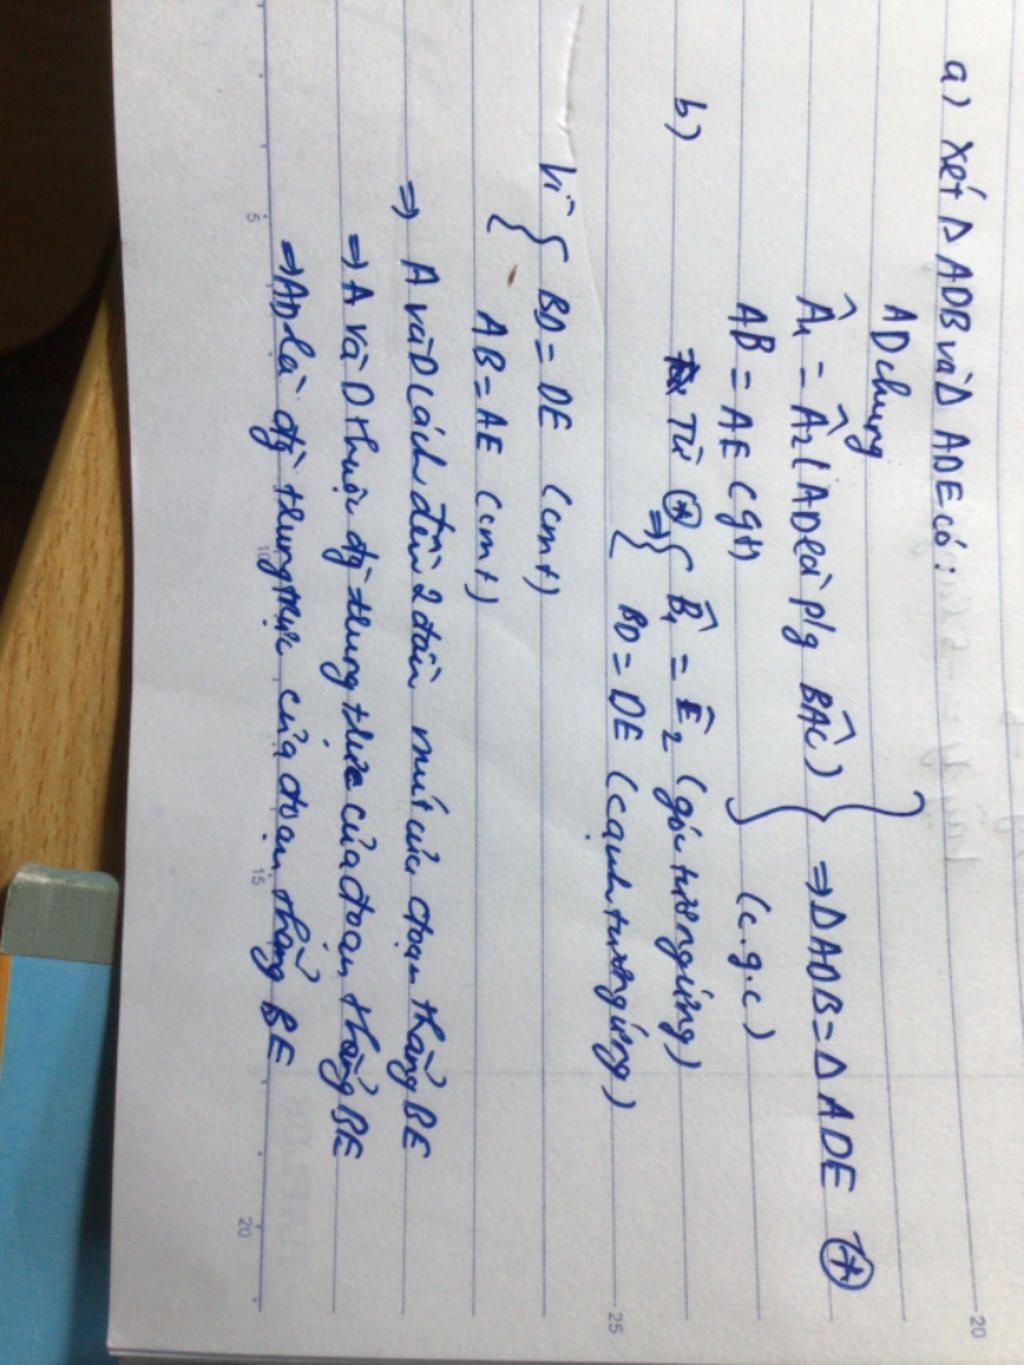 a) Xét Δ ADB và Δ ADE có:
AD chung
Â₁ = Â₂ (AD là p/g BÂC) } ⇒ Δ ADB = Δ ADE (*)
AB = AE (gt) (c.g.c)
b) Từ (*) ⇒ { B̂₁ = Ê₂ (góc tương ứng)
BD = DE (cạnh tương ứng)
Vì { BD = DE (cmt)
AB = AE (cmt)
⇒ A và D cách đều 2 đầu mút của đoạn thẳng BE
⇒ A và D thuộc đg trung trực của đoạn thẳng BE
⇒ AD là đg trung trực của đoạn thẳng BE
5
10
15
20
25
20